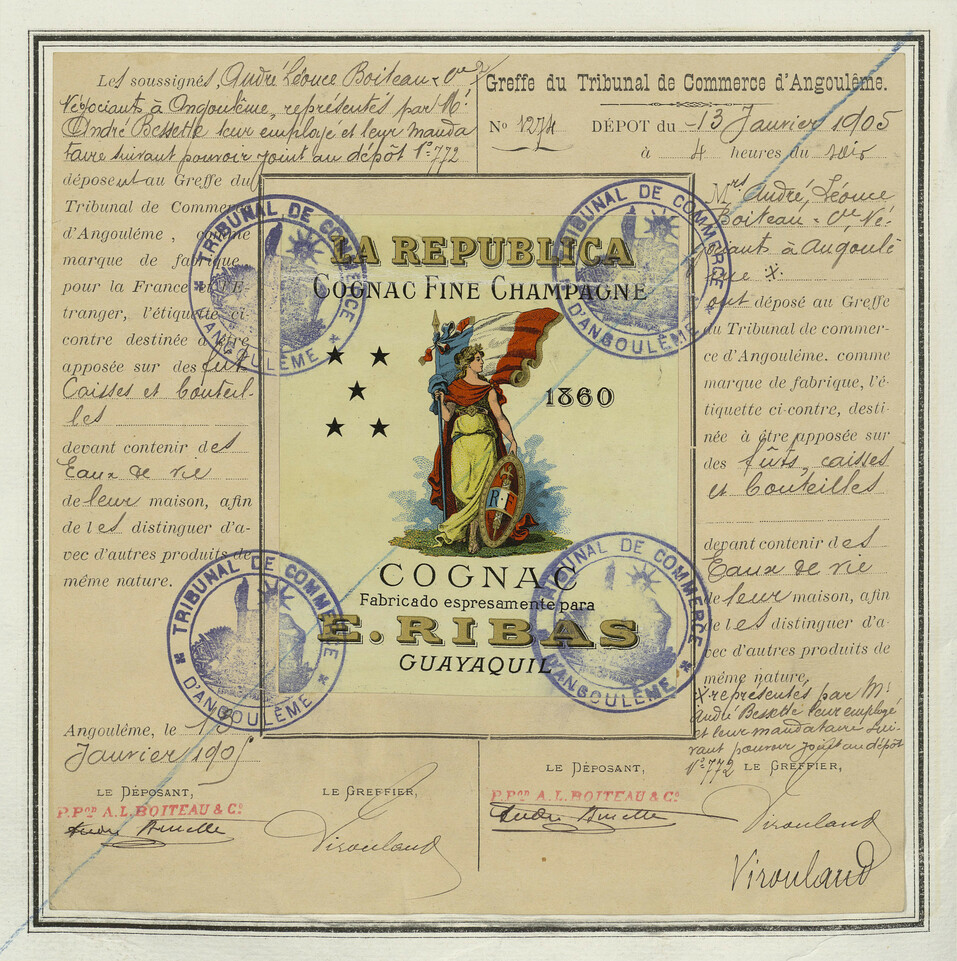 Les soussignés, André Léonce Boiteau & Cie
Négociants à Angoulême, représentés par Mr
André Bessette leur employé et leur manda
taire suivant pouvoir joint au dépôt No 772
déposent au Greffe du
Tribunal de Commerce
d'Angoulême, comme
marque de fabrique
pour la France et l'E-
tranger, l'étiquette ci-
contre destinée à être
apposée sur des fûts
Caisses et bouteil-
les
devant contenir des
Eaux de vie
de leur maison, afin
de les distinguer d'a-
vec d'autres produits de
même nature.
Angoulême, le 13
Janvier 1905
LE DÉPOSANT,
LE GREFFIER,
P.Pon A.L. BOITEAU & Co
Virouland
LA REPUBLICA
COGNAC FINE CHAMPAGNE
1860
R.F
COGNAC
Fabricado espresamente para
E. RIBAS
GUAYAQUIL
TRIBUNAL DE COMMERCE
D'ANGOULÊME
TRIBUNAL DE COMMERCE
D'ANGOULÊME
TRIBUNAL DE COMMERCE
D'ANGOULÊME
TRIBUNAL DE COMMERCE
D'ANGOULÊME
Greffe du Tribunal de Commerce d'Angoulême.
No 1274 DÉPOT du 13 Janvier 1905
à 4 heures du soir
Mrs André, Léonce
Boiteau & Cie, Né-
gociants à Angoulê
me *
ont déposé au Greffe
du Tribunal de commer-
ce d'Angoulême. comme
marque de fabrique, l'é-
tiquette ci-contre, desti-
née à être apposée sur
des fûts, caisses
et bouteilles
devant contenir des
Eaux de vie
de leur maison, afin
de les distinguer d'a-
vec d'autres produits de
même nature.
* représentés par Mr
André Bessette leur employé
et leur mandataire sui-
vant pouvoir joint au dépôt
No 772 LE GREFFIER,
LE DÉPOSANT,
P.Pon A.L. BOITEAU & Co
Virouland
Virouland